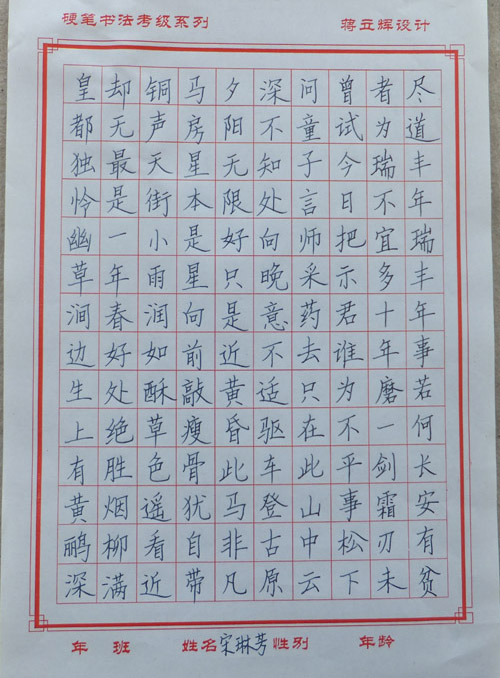 硬笔书法考级系列 蒋立辉设计
尽道丰年瑞丰年事若何长安有贫
者为瑞不宜多十年磨一剑霜刃未
曾试今日把示君谁为不平事松下
问童子言师采药去只在此山中云
深不知处向晚意不适驱车登古原
夕阳无限好只是近黄昏此马非凡
马房星本是星向前敲瘦骨犹自带
铜声天街小雨润如酥草色遥看近
却无最是一年春好处绝胜烟柳满
皇都独怜幽草涧边生上有黄鹂深
年 班 姓名宋琳芳性别 年龄